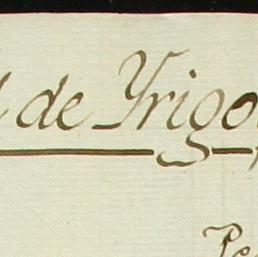 de Yrigo
Pe